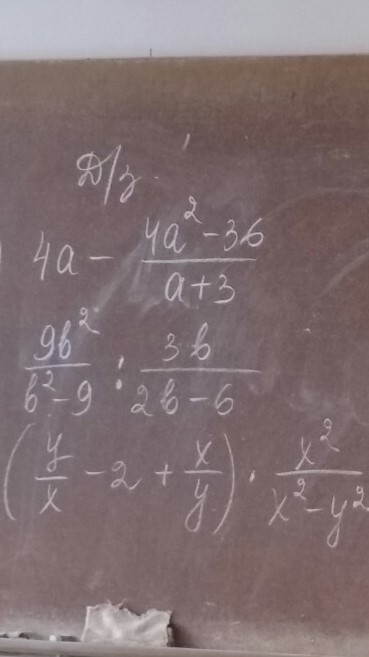 Д/з.
4a - (4a² - 36)/(a + 3)
9b²/(b² - 9) : 3b/(2b - 6)
(y/x - 2 + x/y) · x²/(x² - y²)